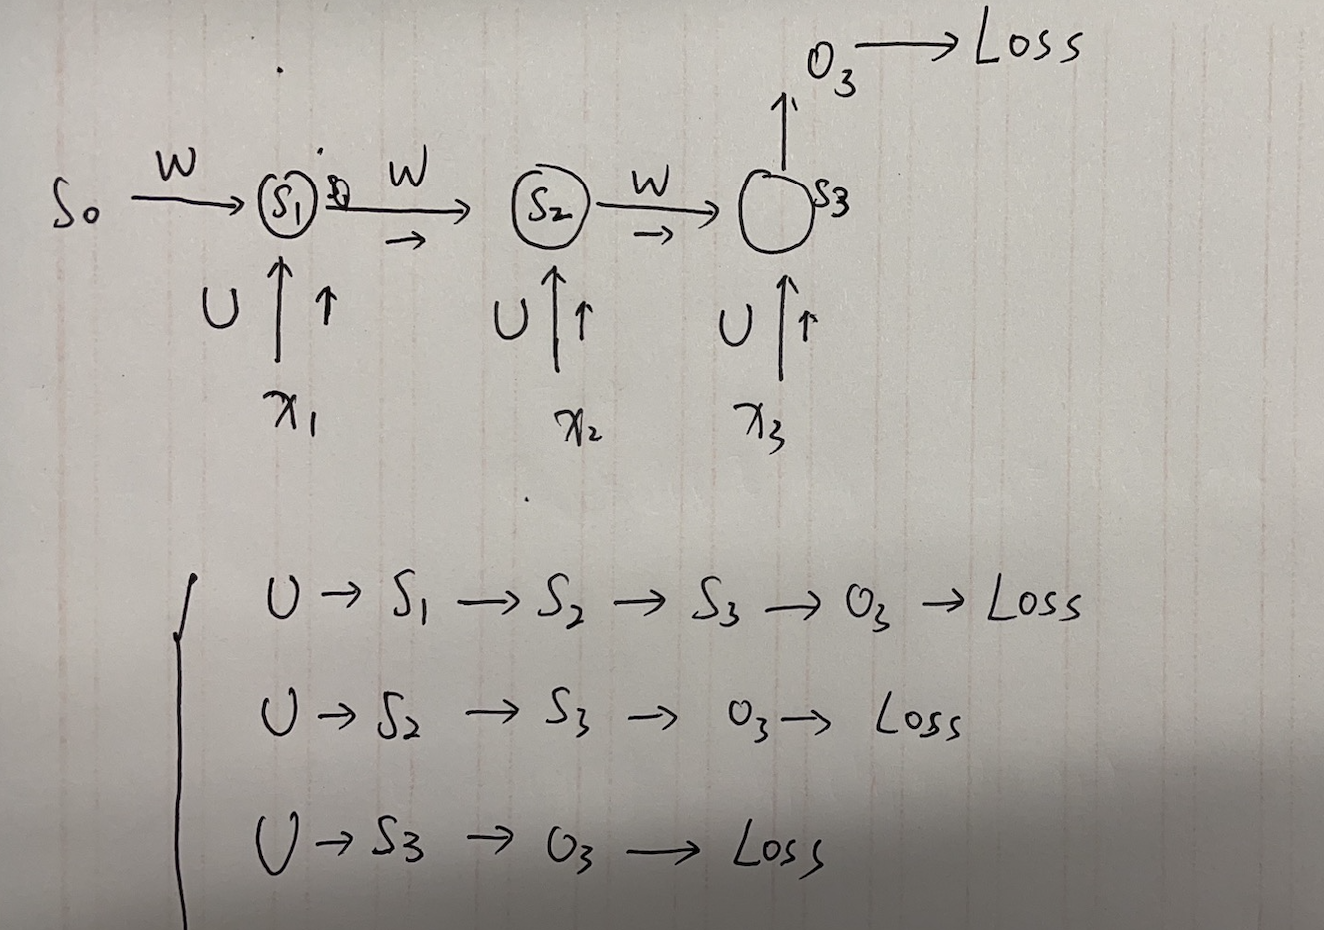 O₃ → Loss
W W W
S₀ → S₁ → S₂ → S₃
U ↑ ↑ U ↑ ↑ U ↑ ↑
x₁ x₂ x₃
U → S₁ → S₂ → S₃ → O₃ → Loss
U → S₂ → S₃ → O₃ → Loss
U → S₃ → O₃ → Loss